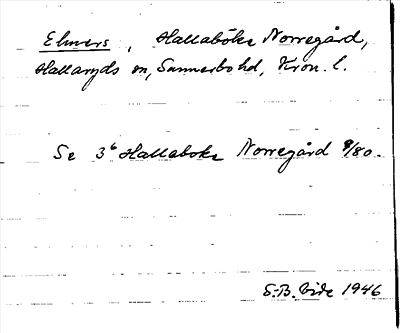 Elmers, Hallaböke Norregård,
Hallaryds sn, Sunnerbo hd, Kron. l.
Se 3b Hallaboke Norregård 8/80.
S.-B. Vide 1946